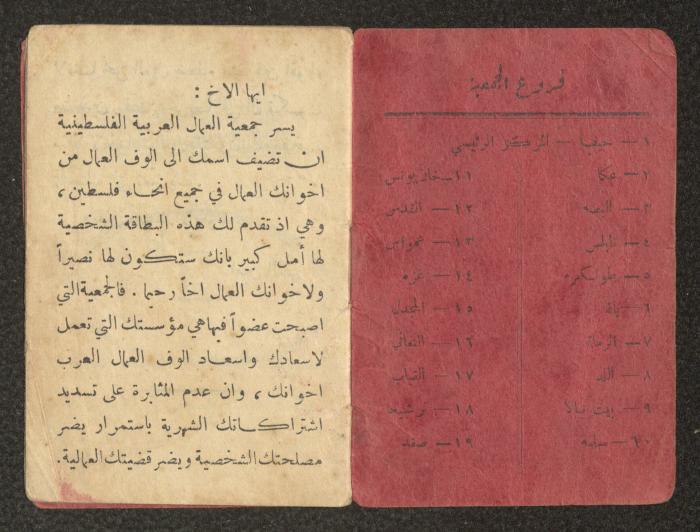 فروع الجمعية
١ — حيفا — المركز الرئيسي
٢ — عكا
٣ —
٤ — نابلس
٥ — طولكرم
٦ — يافا
٧ — الرملة
٨ — اللد
٩ — بيت نبالا
١٠ — سلمه
١١ — خان يونس
١٢ — القدس
١٣ — عمواس
١٤ — غزه
١٥ — المجدل
١٦ —
١٧ —
١٨ — ترشيحا
١٩ — صفد
ايها الاخ :
يسر جمعية العمال العربية الفلسطينية
ان تضيف اسمك الى الوف العمال من
اخوانك العمال في جميع انحاء فلسطين ،
وهي اذ تقدم لك هذه البطاقة الشخصية
لها أمل كبير بانك ستكون لها نصيراً
ولاخوانك العمال اخاً رحيما . فالجمعية التي
اصبحت عضواً فيها هي مؤسستك التي تعمل
لاسعادك واسعاد الوف العمال العرب
اخوانك ، وان عدم المثابرة على تسديد
اشتراكاتك الشهرية باستمرار يضر
مصلحتك الشخصية ويضر قضيتك العمالية .